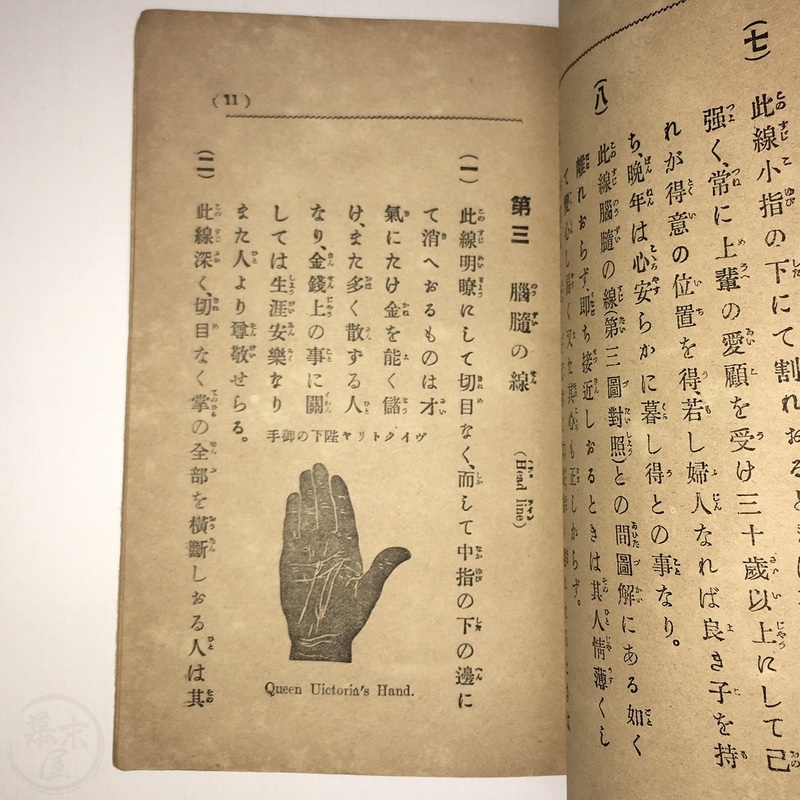 (七)
此線小指の下にて割れおると
强く、常に上輩の愛顧を受け三十歲以上にして己
れが得意の位置を得、若し婦人なれば良き子を持
ち、晩年は心安らかに暮し得との事なり。
(八)
此線腦隨の線(第三圖對照)との間圖解にある如く
離れおらず、卽ち接近しおるときは其人情薄くし
(11)
第三 腦隨の線 (Head line)
(一) 此線明瞭にして切目なく、而して中指の下の邊に
て消へおるものは才
氣にたけ金を能く儲
け、また多く散ずる人
なり、金錢上の事に關
しては生涯安樂なり
また人より尊敬せらる。
ヴイクトリヤ陛下の御手
Queen Uictoria's Hand.
(二) 此線深く、切目なく掌の全部を橫斷しおる人は其
幕末屋